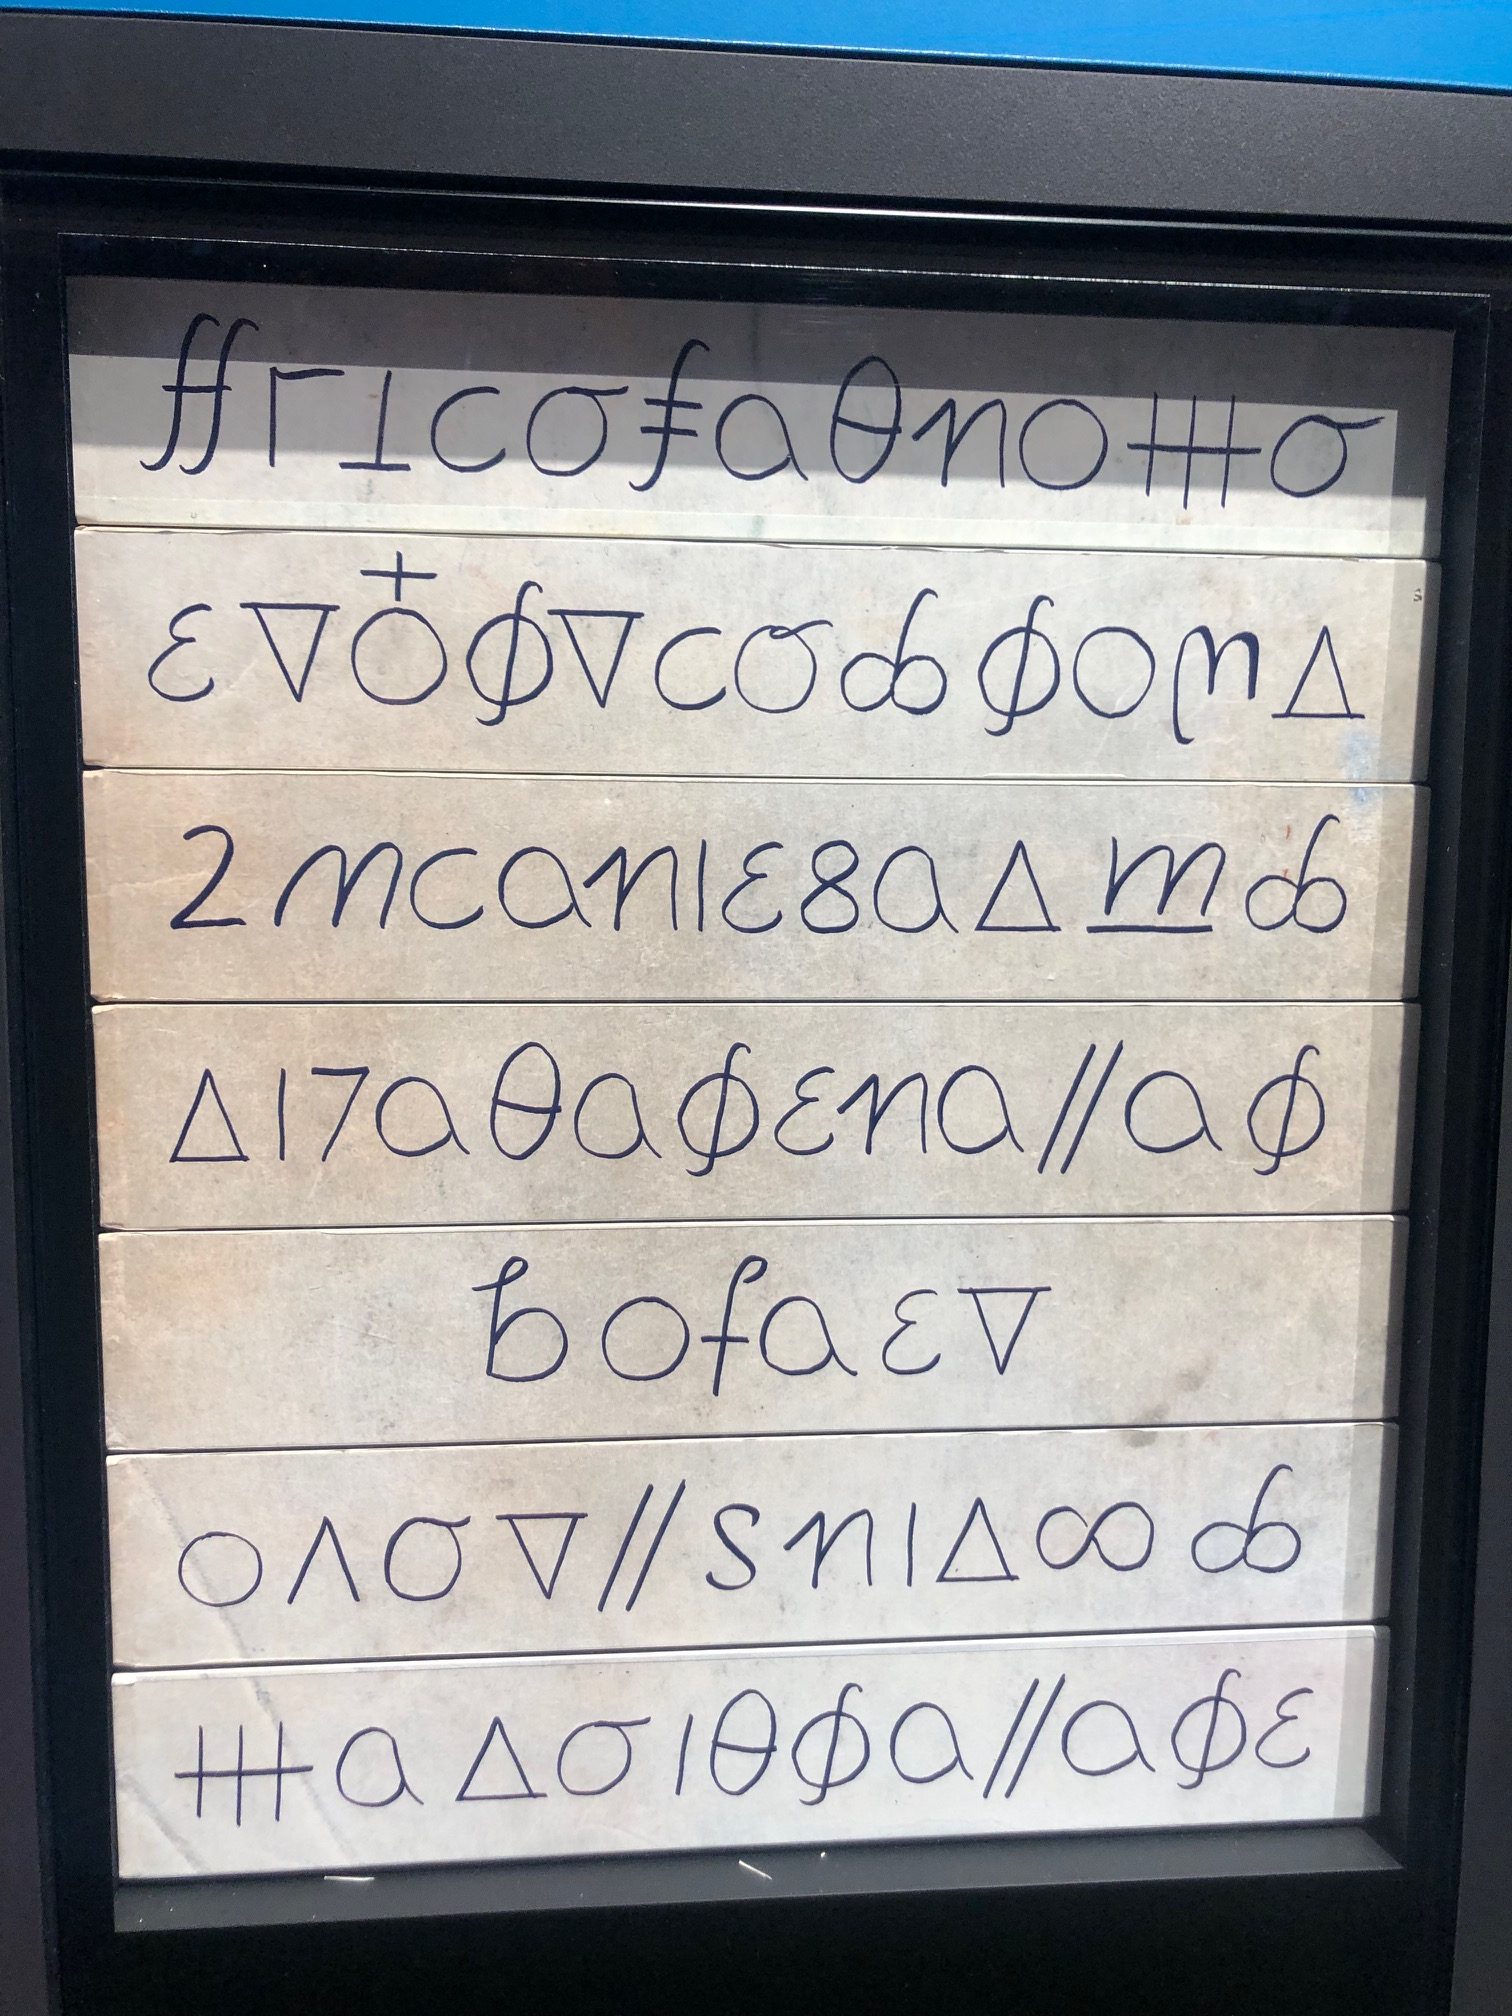 ﬀ Γ ⊥ c σ ⨎ a θ n o 卌 σ
ε ∇ ⫯ ϕ ∇ c σ ȸ ϕ o ო Δ
2 m c a n ı ε 8 a Δ m̲ ȸ
Δ ı 7 a θ a ϕ ε n a // a ϕ
b o f a ε ∇
o Λ σ ∇ // s n ı Δ ∞ ȸ
卌 a Δ σ ı θ ϕ a // a ϕ ε